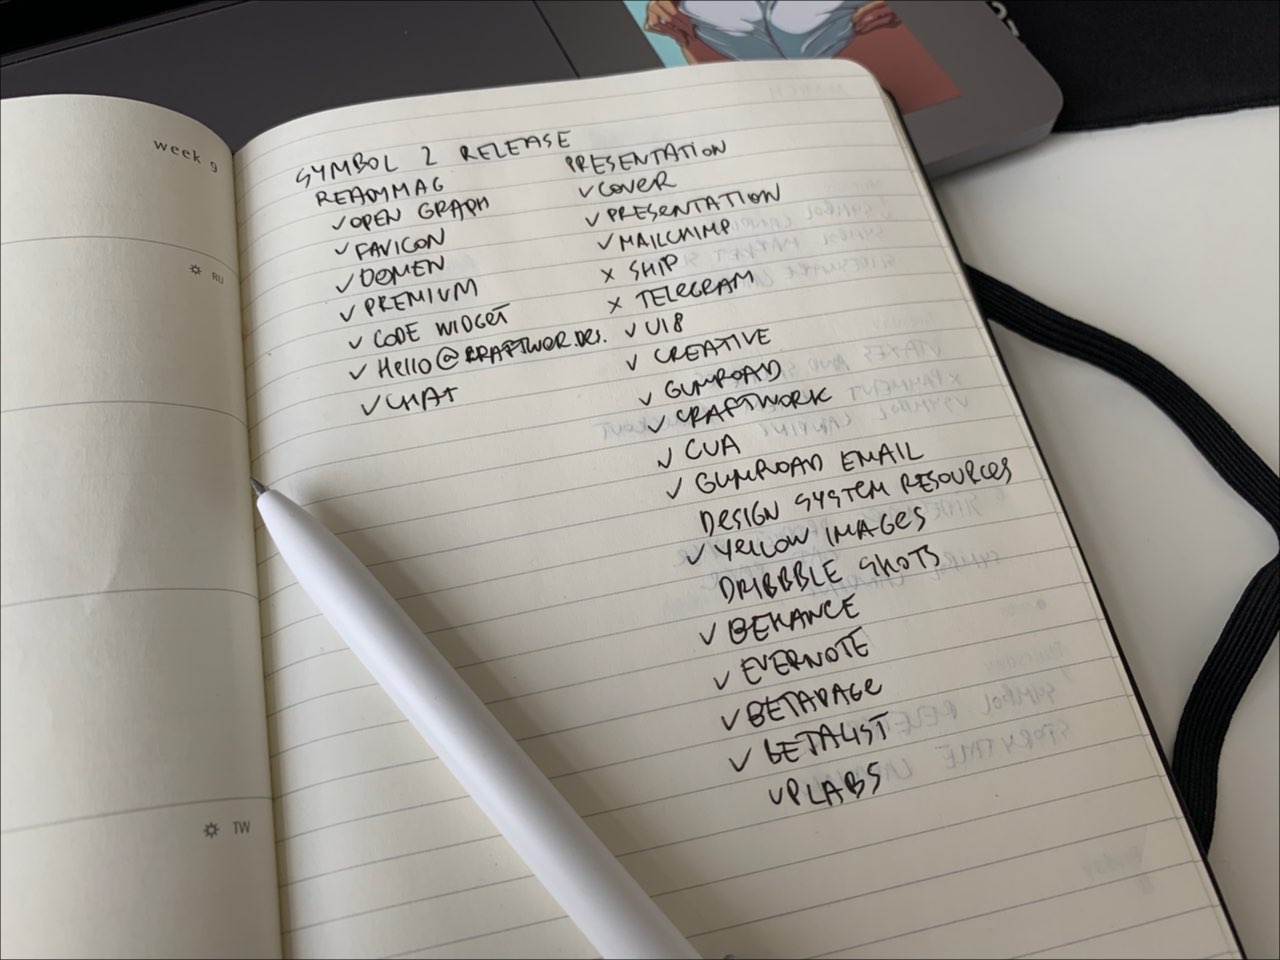 week 9
RU
TW
SYMBOL 2 RELEASE
READYMAG
✓ OPEN GRAPH
✓ FAVICON
✓ DOMEN
✓ PREMIUM
✓ CODE WIDGET
✓ Hello@CRAFTWOR.DES.
✓ CHAT
PRESENTATION
✓ COVER
✓ PRESENTATION
✓ MAILCHIMP
× SHIP
× TELEGRAM
✓ UI8
✓ CREATIVE
✓ GUMROAD
✓ CRAFTWORK
✓ CUA
✓ GUMROAD EMAIL
DESIGN SYSTEM RESOURCES
✓ YELLOW IMAGES
DRIBBBLE SHOTS
✓ BEHANCE
✓ EVERNOTE
✓ BETAPAGE
✓ BETALIST
✓ PLABS